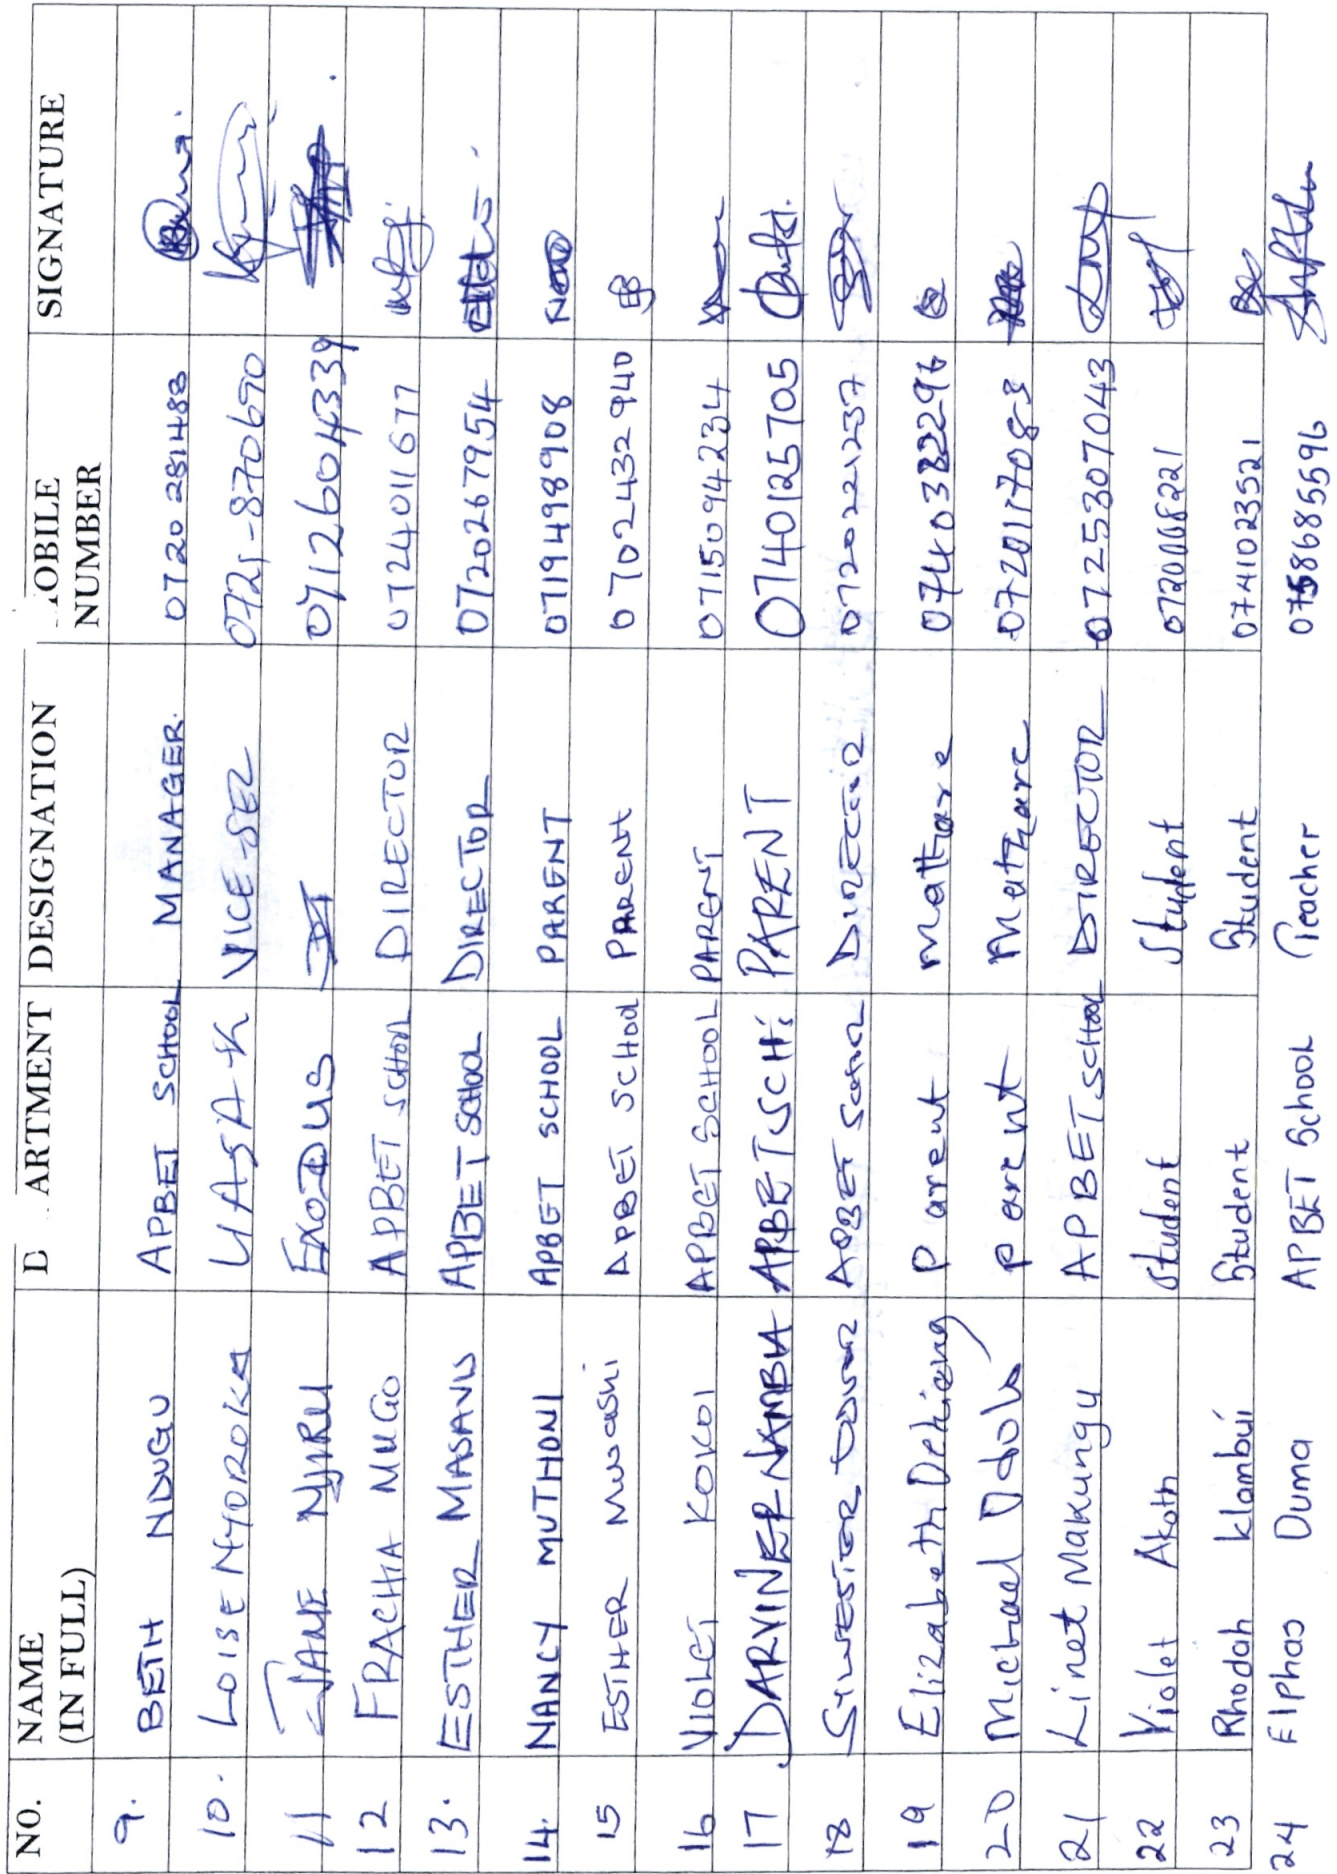 NO. NAME (IN FULL) D ARTMENT DESIGNATION MOBILE NUMBER SIGNATURE
9. BETH NDUGU APBET SCHOOL MANAGER. 0720 281483
10. LOISE NYOROKA UASA-K VICE-SEC 0721-870690
11 JANE NJIRU EXODUS 0712604339
12 FRACHIA MUGO APBET SCHOOL DIRECTOR 0724011677
13. ESTHER MASANU APBET SCHOOL DIRECTOR 0720267954
14. NANCY MUTHONI APBET SCHOOL PARENT 0719498908
15 ESTHER Mwashi APBET SCHOOL PARENT 0702432940
16 VIOLET KOKOI APBET SCHOOL PARENT 0715094234
17 DARVINER NAMBIA APBET SCH: PARENT 0740125705
18 SYLWESTER APBET SCHOOL DIRECTOR 0720221237
19 Elizabeth Parent mathare
20 Michael Odolo parent mathare 0720117083
21 Linet Makungu APBET SCHOOL DIRECTOR 0725307043
22 Violet Akoth Student Student 0720068221
23 Rhodah klambui Student Student 0741023521
24 Elphas Duma APBET School Teacher 0758685596